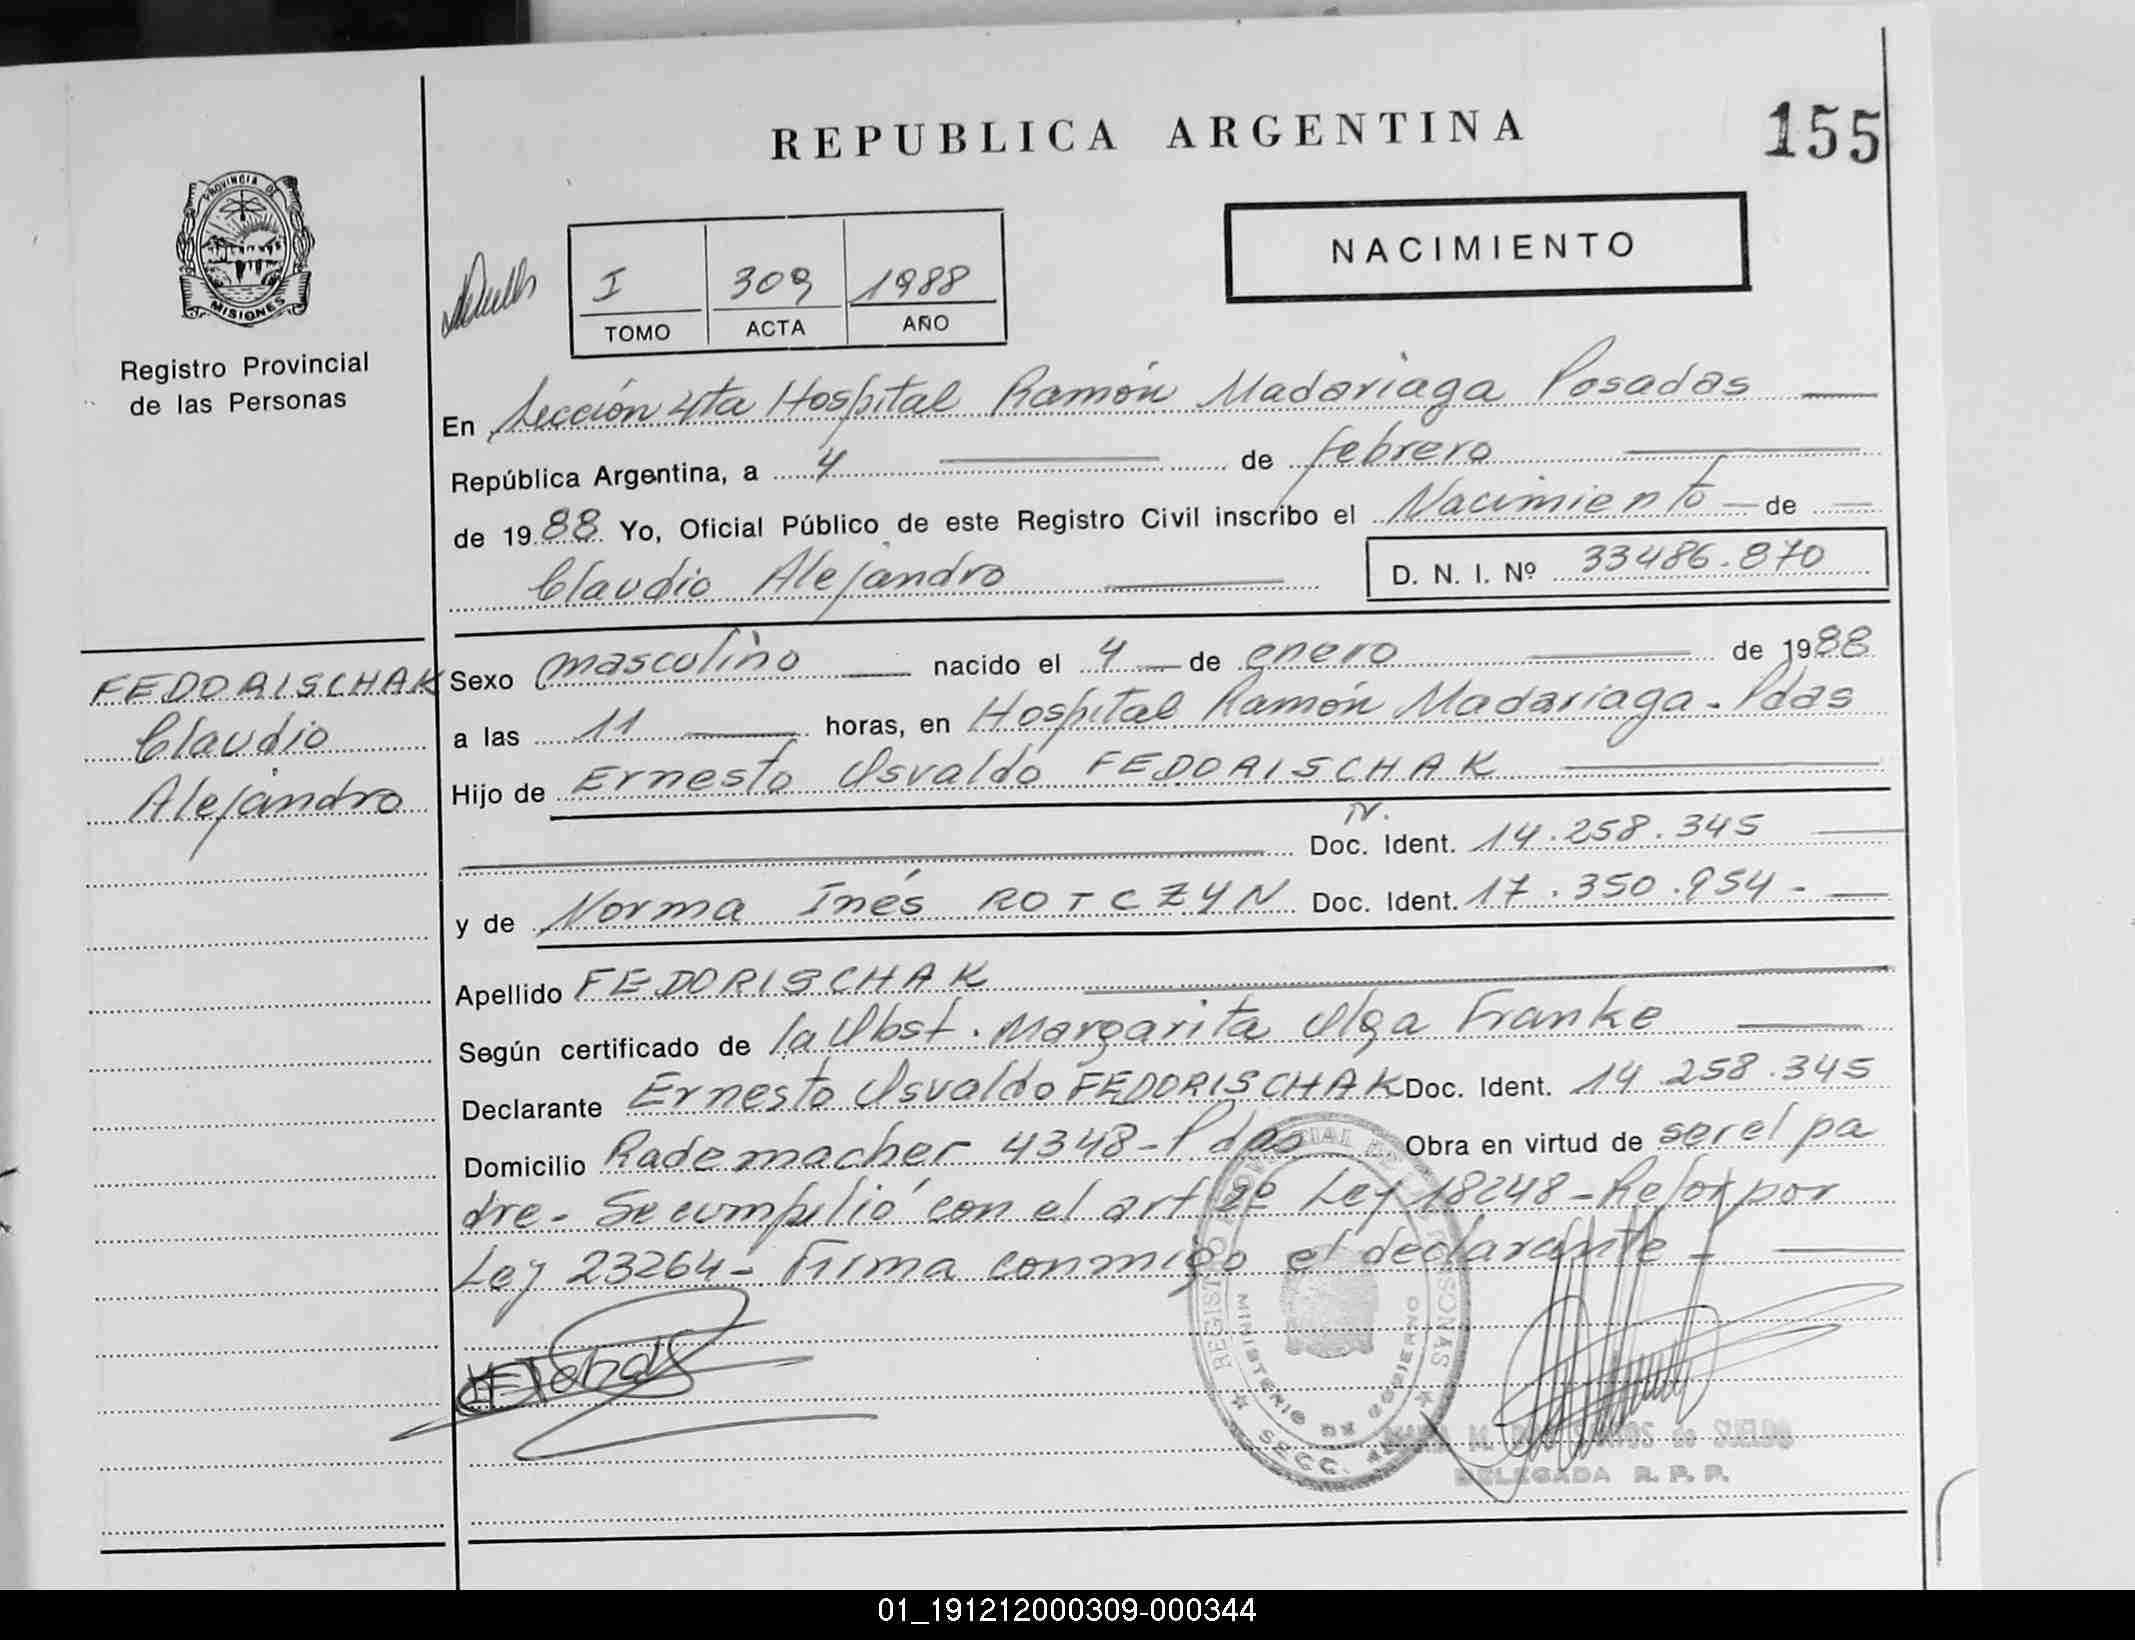 REPUBLICA ARGENTINA
155
PROVINCIA DE
MISIONES
Registro Provincial
de las Personas
NACIMIENTO
I 309 1988
TOMO ACTA AÑO
En Sección 4ta Hospital Ramón Madariaga Posadas
República Argentina, a 4 de febrero
de 1988 Yo, Oficial Público de este Registro Civil inscribo el Nacimiento de
Claudio Alejandro
D. N. I. Nº 33486.870
FEDORISCHAK
Claudio
Alejandro
Sexo masculino nacido el 4 de enero de 1988
a las 11 horas, en Hospital Ramón Madariaga - Pdas
Hijo de Ernesto Osvaldo FEDORISCHAK
N.
Doc. Ident. 14.258.345
y de Norma Inés ROTCZYN Doc. Ident. 17.350.954-
Apellido FEDORISCHAK
Según certificado de la Obst. Margarita Olga Franke
Declarante Ernesto Osvaldo FEDORISCHAK Doc. Ident. 14 258.345
Domicilio Rademacher 4348-Pdas Obra en virtud de ser el pa
dre - Se cumpilió con el art 2º Ley 18248 - Refor por
Ley 23264 - Firma conmigo el declarante -
MINISTERIO DE GOBIERNO
SECC.
DELEGADA R. P. P.
01_191212000309-000344